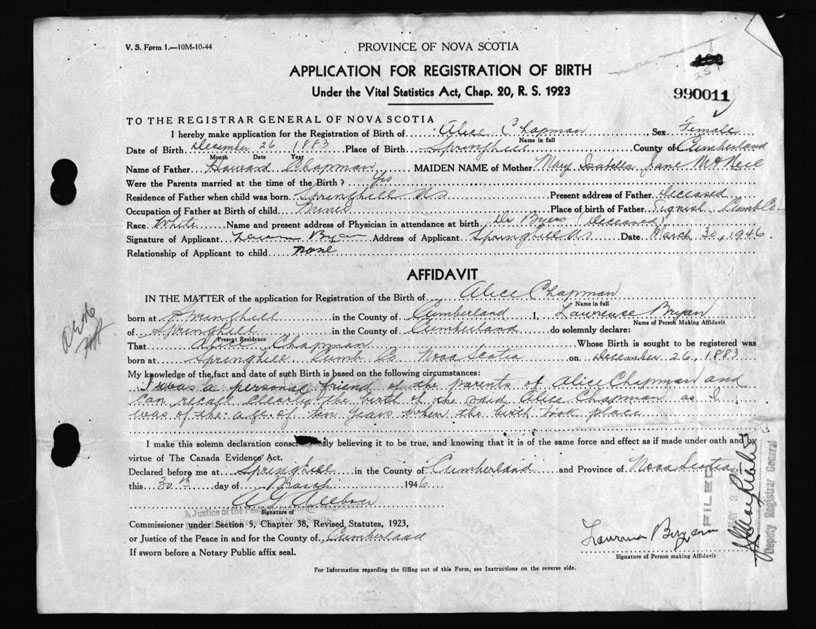 V. S. Form 1.—10M-10-44
PROVINCE OF NOVA SCOTIA
APPLICATION FOR REGISTRATION OF BIRTH
Under the Vital Statistics Act, Chap. 20, R. S. 1923
990011
TO THE REGISTRAR GENERAL OF NOVA SCOTIA
I hereby make application for the Registration of Birth of Alice Chapman Sex Female
Name in full
Date of Birth December 26 1883 Place of Birth Springhill County of Cumberland
Month Date Year
Name of Father Howard Chapman MAIDEN NAME of Mother Mary Isabella Jane McNeil
Were the Parents married at the time of the Birth? Yes
Residence of Father when child was born Springhill NS Present address of Father Deceased
Occupation of Father at Birth of child Miner Place of birth of Father
Race White Name and present address of Physician in attendance at birth Dr Byers Deceased
Signature of Applicant Bryan Address of Applicant Springhill NS Date March 30, 1946
Relationship of Applicant to child none
AFFIDAVIT
IN THE MATTER of the application for Registration of the Birth of Alice Chapman
Name in full
born at Springhill in the County of Cumberland I, Lawrense Bryan
Name of Person Making Affidavit
of Springhill in the County of Cumberland do solemnly declare:
Present Residence
That Alice Chapman Whose Birth is sought to be registered was
born at Springhill Cumb Co Nova Scotia on December 26, 1883
My knowledge of the fact and date of such Birth is based on the following circumstances:
I was a personal friend of the parents of Alice Chapman and
can recall clearly the birth of the said Alice Chapman as I
was of the age of ten years when the birth took place
I make this solemn declaration believing it to be true, and knowing that it is of the same force and effect as if made under oath and by
virtue of The Canada Evidence Act.
Declared before me at Springhill in the County of Cumberland and Province of Nova Scotia
this 30th day of March 1946
Signature of
Commissioner under Section 5, Chapter 38, Revised Statutes, 1923,
or Justice of the Peace in and for the County of Cumberland
If sworn before a Notary Public affix seal.
Bryan
Signature of Person making Affidavit
For Information regarding the filling out of this Form, see Instructions on the reverse side.
FILED
Deputy Registrar General